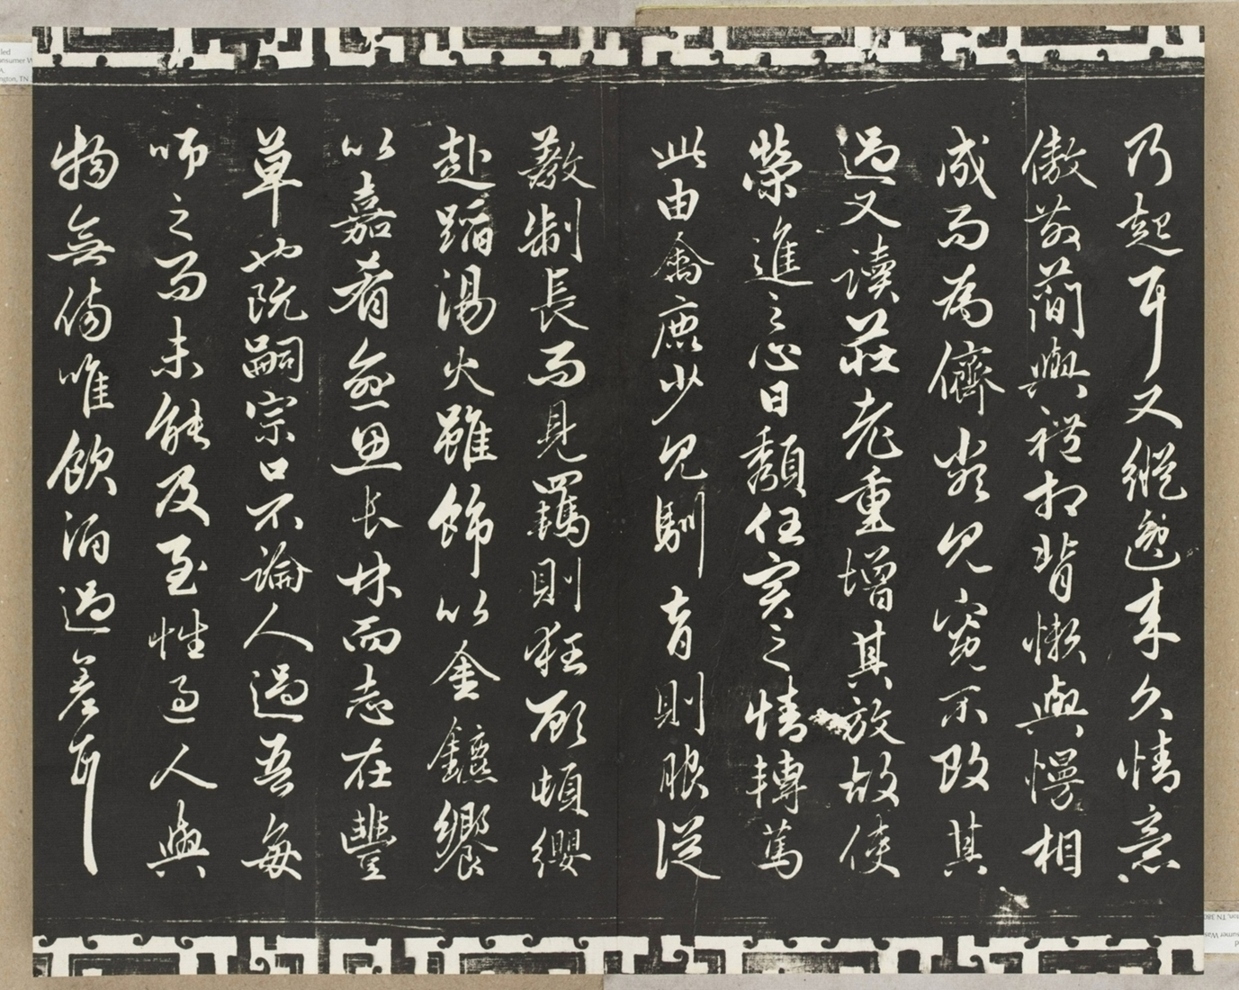 乃起耳又縱逸来久情意
傲散簡與禮相背懶與慢相
成而為儕類見寬不攻其
過又讀莊老重增其放故使
榮進之心日頹任實之情轉篤
此由禽鹿少見馴育則服從
教制長而見羈則狂顧頓纓
赴蹈湯火雖飾以金鑣饗
以嘉肴愈思長林而志在豐
草也阮嗣宗口不論人過吾每
師之而未能及至性過人與
物無傷唯飲酒過差耳